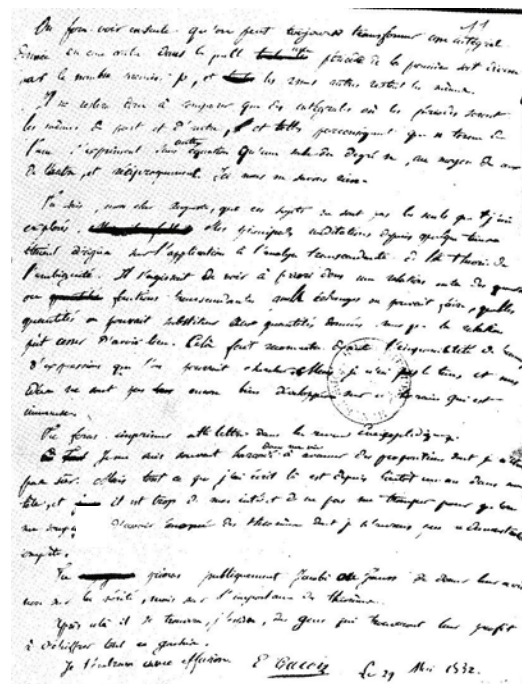 11
On fera voir ensuite qu'on peut toujours transformer une intégrale
donnée en une autre dans laquelle une période de la première soit divisée
par le nombre premier p, et les 2n-1 autres restent les mêmes.
Il ne restera donc à comparer que des intégrales où les périodes seront
les mêmes de part et d'autre, et telles par conséquent que n termes de
l'une s'expriment sans autre équation qu'une seule du degré n, au moyen de ceux
de l'autre, et réciproquement. Ici nous ne savons rien.
Tu sais, mon cher Auguste, que ces sujets ne sont pas les seuls que j'aie
explorés. Mes principales méditations depuis quelque temps
étaient dirigées sur l'application à l'analyse transcendante de la théorie de
l'ambiguité. Il s'agissait de voir à priori dans une relation entre des quantités
ou fonctions transcendantes quels échanges on pouvait faire, quelles
quantités on pouvait substituer aux quantités données sans que la relation
pût cesser d'avoir lieu. Cela fait reconnaître l'impossibilité de
d'expressions que l'on pourrait chercher. Mais je n'ai pas le temps et mes
idées ne sont pas encore bien développées sur ce terrain qui est
immense.
Tu feras imprimer cette lettre dans la revue encyclopédique.
Je me suis souvent hasardé dans ma vie à avancer des propositions dont je n'étais
pas sûr. Mais tout ce que j'ai écrit là est depuis bientôt un an dans ma
tête, et il est trop de mon intérêt de ne pas me tromper pour qu'on
me d'avoir énoncé des théorèmes dont je n'aurais pas la démonstration
complète.
Tu prieras publiquement Jacobi ou Gauss de donner leur avis
non sur la vérité, mais sur l'importance des théorèmes.
Après cela il se trouvera, j'espère, des gens qui trouveront leur profit
à déchiffrer tout ce gachis.
Je t'embrasse avec effusion. E Galois Le 29 Mai 1832.